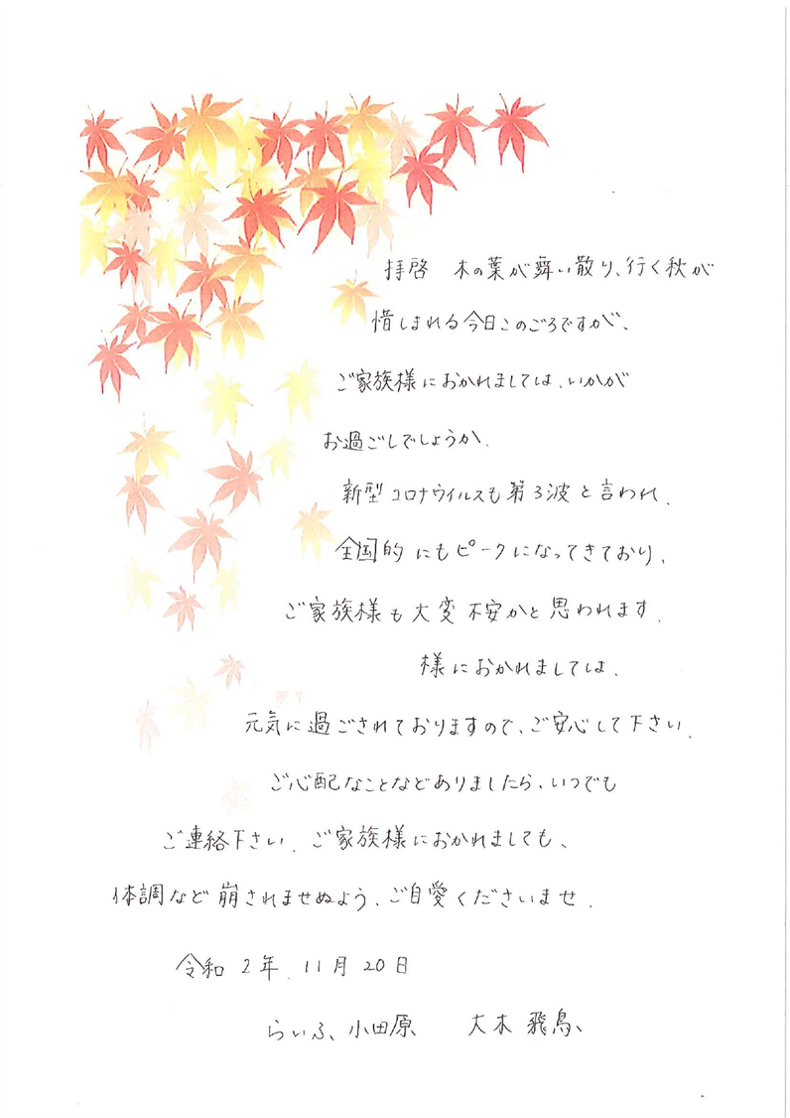 拝啓 木の葉が舞い散り、行く秋が
惜しまれる今日このごろですが、
ご家族様におかれましては、いかが
お過ごしでしょうか.
新型コロナウイルスも第3波と言われ、
全国的にもピークになってきており、
ご家族様も大変不安かと思われます.
様におかれましては、
元気に過ごされておりますので、ご安心して下さい.
ご心配なことなどありましたら、いつでも
ご連絡下さい. ご家族様におかれましても、
体調など崩されませぬよう、ご自愛くださいませ.
令和2年.11月20日
らいふ、小田原 大木飛鳥、